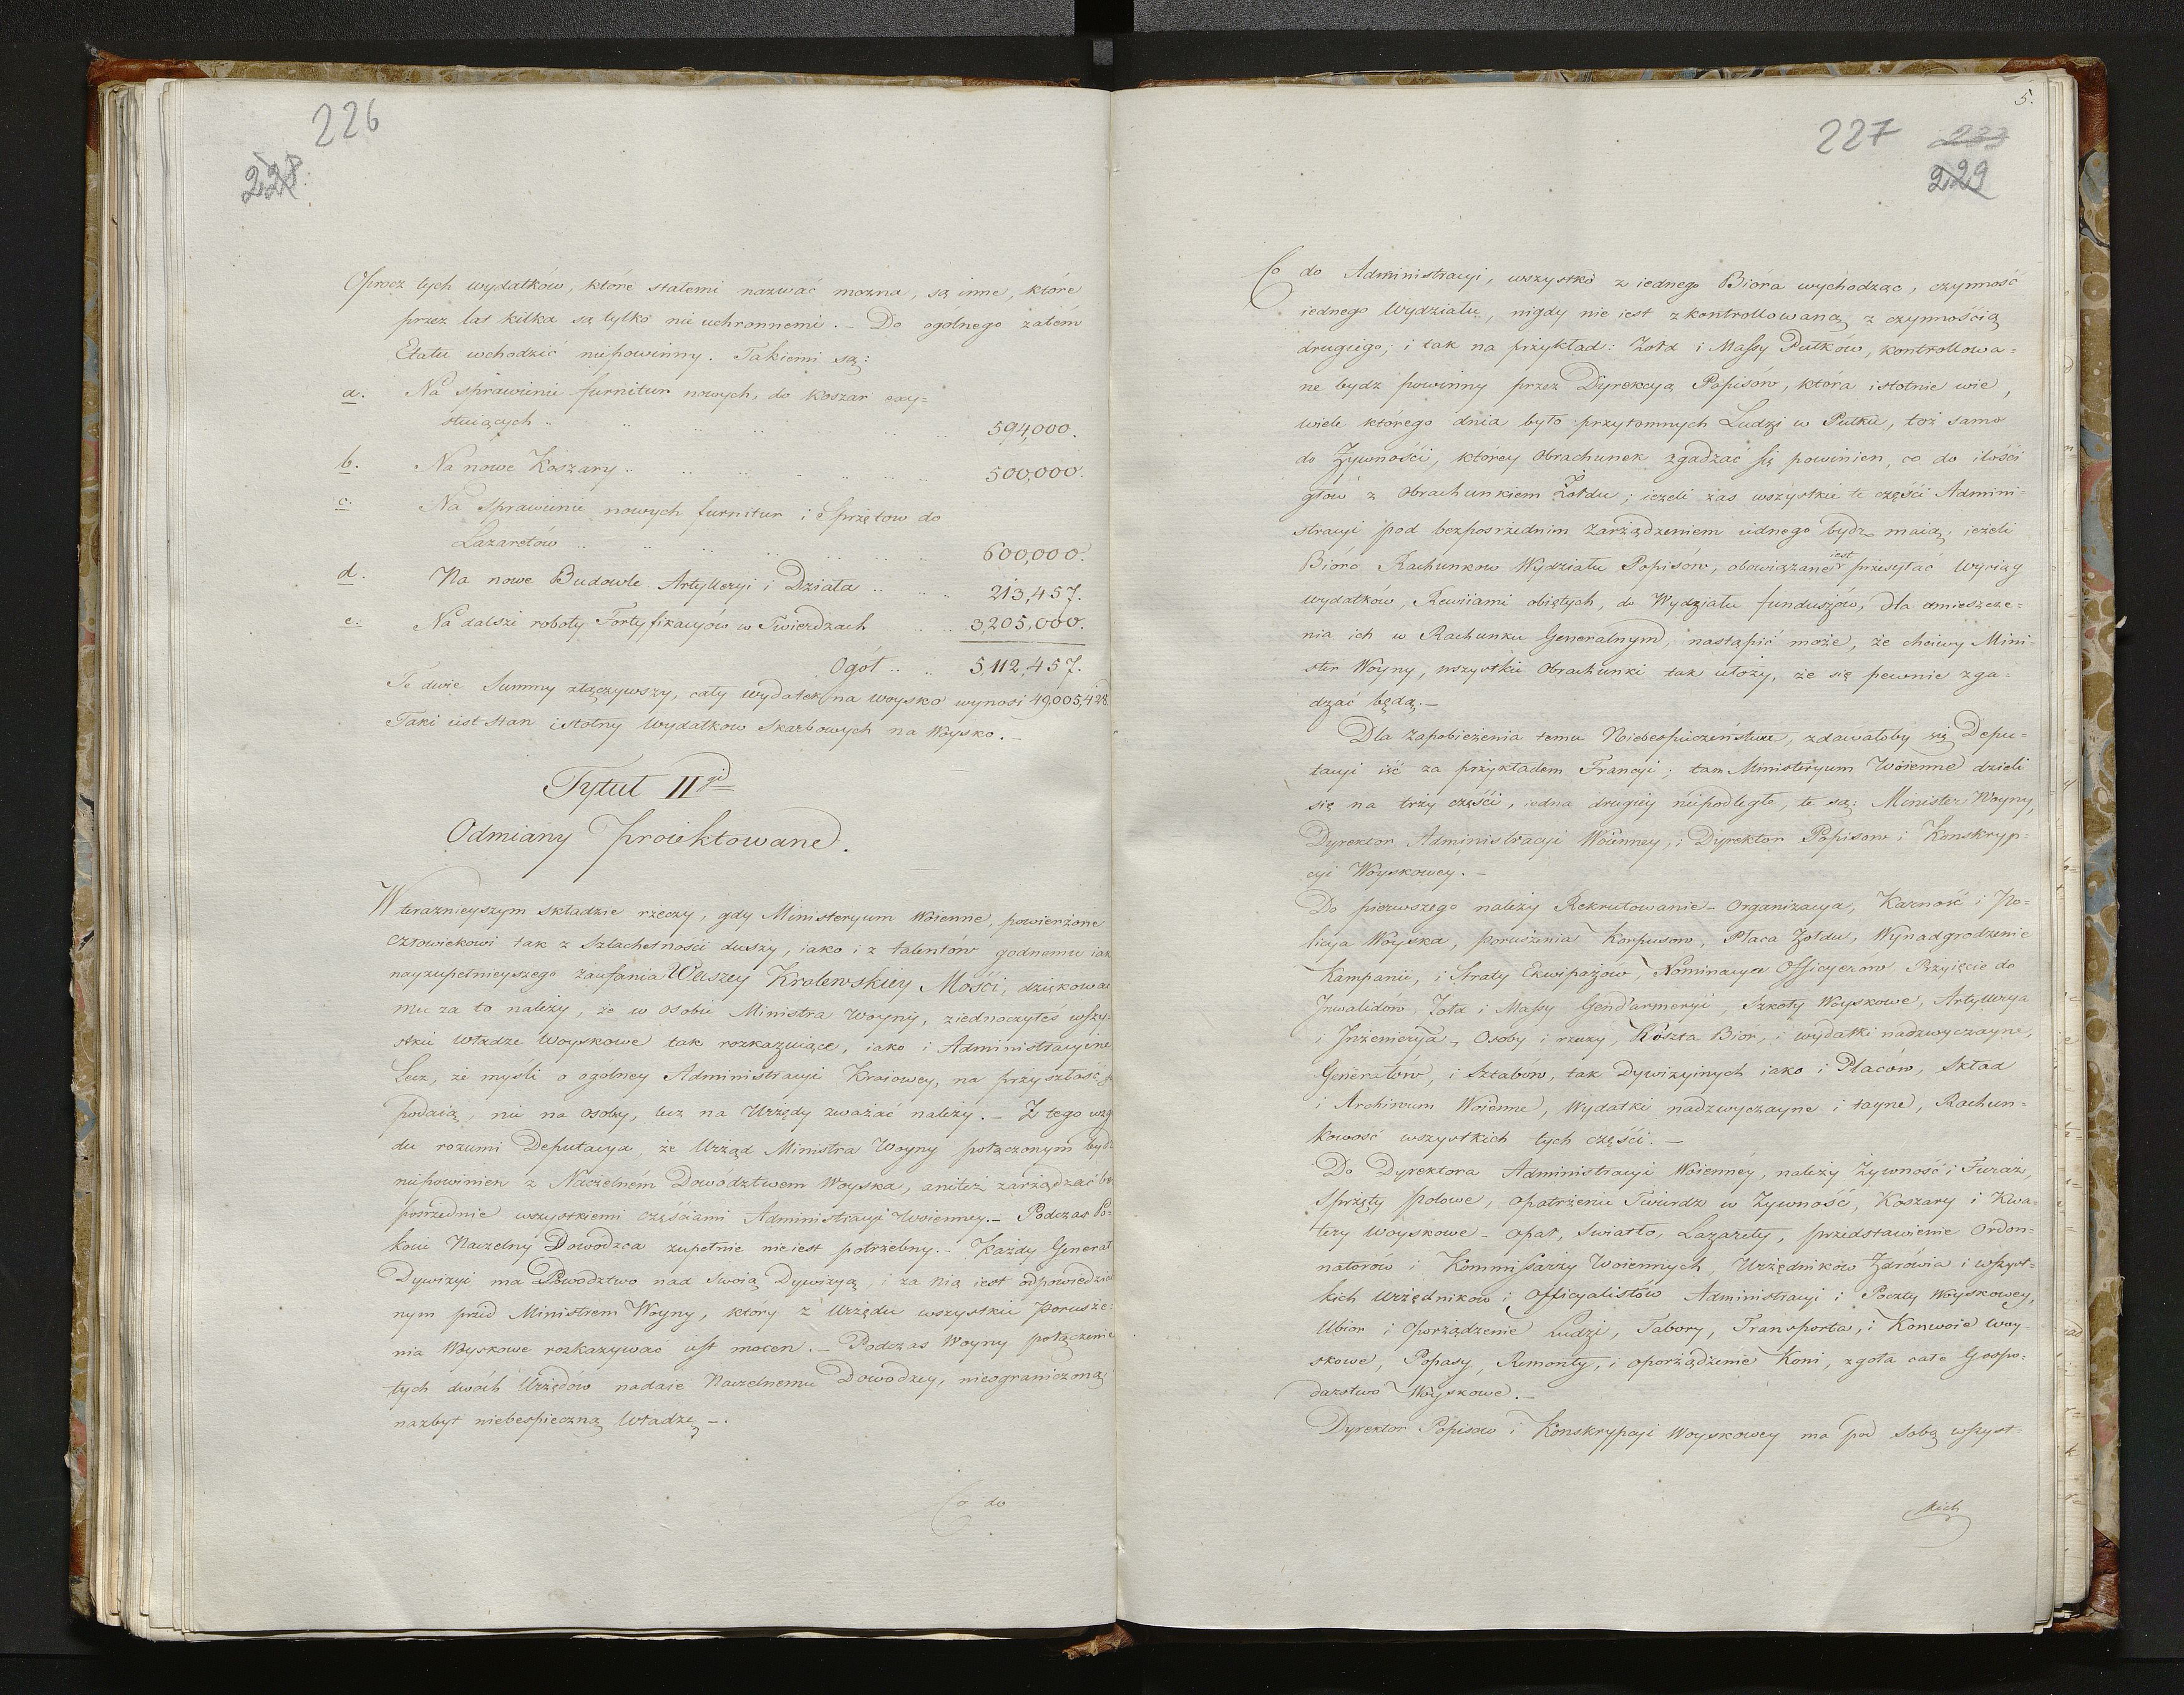 226
228.
Oprocz tych wydatków, które stałemi nazwać można, są inne, które
przez lat kilka są tylko nieuchronnemi. – Do ogolnego zatem
Etatu wchodzić niepowinny. Takiemi są:
a. Na sprawienie furnitur nowych, do koszar exy=
stuiących .. .. .. .. .. .. 594,000.
b. Na nowe Koszary .. .. .. .. .. .. 500,000.
c. Na Sprawienie nowych furnitur i Sprzętow do
Lazaretów .. .. .. .. .. .. 600,000.
d. Na nowe Budowle Artylleryi i Działa .. .. .. 213,457.
e. Na dalsze roboty Fortyfikacyów w Twierdzach .. .. 3,205,000.
Ogół .. .. 5,112,457.
Te dwie Summy złączywszy, cały wydatek na woysko wynosi 49,005,428.
Taki iest stan istotny wydatkow Skarbowych na Woysko. –
Tytuł II gi
Odmiany proiektowane.
W teraznieyszym składzie rzeczy, gdy Ministeryum Woienne, powierzone
człowiekowi tak z Szlachetności duszy, iako i z talentów godnemu iak
nayzupełnieyszego zaufania Waszey Krolewskiey Mości, dziękować
mu za to należy, że w osobie Ministra woyny, ziednoczyłeś wszy=
stkie władze woyskowe tak rozkazuiące, iako i Administracyine
Lecz, że myśli o ogolney Administracyi Kraiowey, na przyszłość
podaią, nie na osoby, lecz na Urzędy zważać należy. – Z tego wzg
du rozumi Deputacya, że Urząd Ministra Woyny połączonym bydź
niepowinien z Naczelném Dowództwem Woyska, anitéż zarządzać be
pośrzednie wszystkiemi częściami Administracyi Woienney. – Podczas Po=
koiu Naczelny Dowódzca zupełnie nieiest potrzebny. – Każdy Generał
Dywizyi ma Dowodztwo nad swoią Dywizyą, i za nią iest odpowiedzial
nym przed Ministrem Woyny, który z Urzędu wszystkie porusze=
nia Woyskowe rozkazywać iest mocen. – Podczas Woyny połączenie
tych dwóch Urzędow nadaie Naczelnemu Dowodzcy, nieograniczoną
nazbyt niebespieczną Władzę –.
Co do
5.
227 227
229
Co do Administracyi, wszystko z iednego Bióra wychodząc, czynność
iednego Wydziału, nigdy nie iest zkontrollowaną z czynnością
drugiego; i tak na przykład: Żołd i Massy Pułków, kontrollowa=
ne bydz powinny przez Dyrekcyą Popisów, która istotnie wie,
wiele którego dnia było przytomnych Ludzi w Pułku, toż samo
do Żywności, którey obrachunek zgadzać się powinien, co do ilości
głow z obrachunkiem Żołdu; ieżeli zas wszystkie te części Admini=
stracyi pod bezpośrzednim zarządzeniem iednego bydz maią; ieżeli
Bióro Rachunkow Wydziału Popisów, obowiązane iest przesyłać wyciąg
wydatków, Rewiiami obiętych, do Wydziału funduszów, dla umieszcze=
nia ich w Rachunku Generalnym, nastąpić może, że chciwy Mini=
ster Woyny, wszystkie Obrachunki tak ułoży, że się pewnie zga=
dzać będą. –
Dla zapobieżenia temu Niebespieczeństwu, zdawałoby się Depu=
tacyi iść za przykładem Francyi; tam Ministeryum Woienne dzieli
się na trzy części, iedna drugiey niepodległe, te są: Minister Woyny,
Dyrektor Administracyi Woienney, i Dyrektor Popisow i Konskryp=
cyi Woyskowey. –
Do pierwszego należy Rekrutowanie – Organizacya, Karność i Po=
licya Woyska, poruszenia Korpusow, Płaca Żołdu, Wynadgrodzenie
Kampanii, i Straty Ekwipażow, Nominacya Officyerow Przyięcie do
Inwalidow, Żołd i Massy Gend'armeryi, Szkoły Woyskowe, Artyllerya
i Inżenierya, Osoby i rzeczy, Koszta Bior, i wydatki nadzwyczayne,
Generałów, i Sztabów, tak Dywizyinych iako i Placów, Skład
i Archiwum Woienne, Wydatki nadzwyczayne i tayne, Rachun=
kowość wszystkich tych części. –
Do Dyrektora Administracyi Woienney, należy Żywność i Furaż,
Sprzęty polowe, opatrzenie Twierdz w Żywność, Koszary i Kwa=
tery Woyskowe – opał, Swiatło, Lazarety, przedstawienie Ordon=
natorów i Kommissarzy Woiennych, Urzędników Zdrówia i wszyst=
kich Urzędnikow i Officyalistów Administracyi i Poczty Woyskowey,
Ubior i Oporządzenie Ludzi, Tabory, Transporta, i Konwoie woy=
skowe, Popasy, Remonty, i oporządzenie Koni, zgoła całe Gospo=
darstwo Woyskowe. –
Dyrektor Popisow i Konskrypcyi Woyskowey ma pod sobą wszyst=
kich